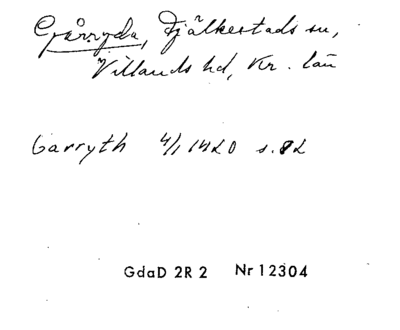 Gårryda, Fjälkestads sn,
Villands hd, Kr. län
Garryth 4/1 1420 s. 82
GdaD 2R 2 Nr 12304